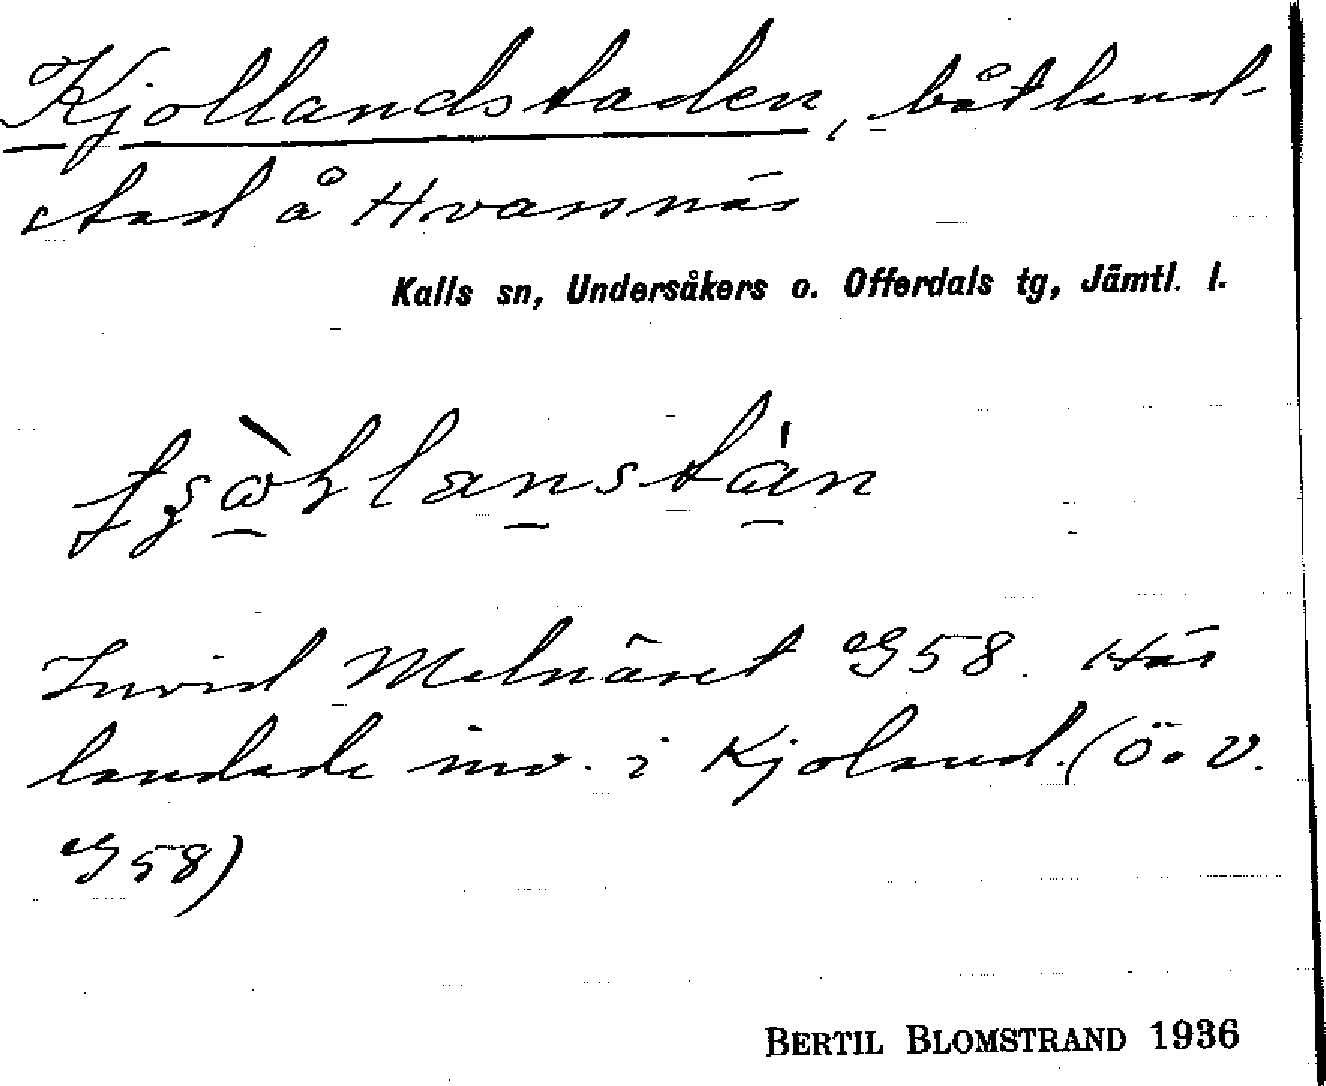 Kjollandstaden, båtland-
stad å Hvannäs
Kalls sn, Undersåkers o. Offerdals tg, Jämtl. l.
Invid Melnäset G58. Här
landade inv. i Kjoland. (Ö. V.
G58)
BERTIL BLOMSTRAND 1936